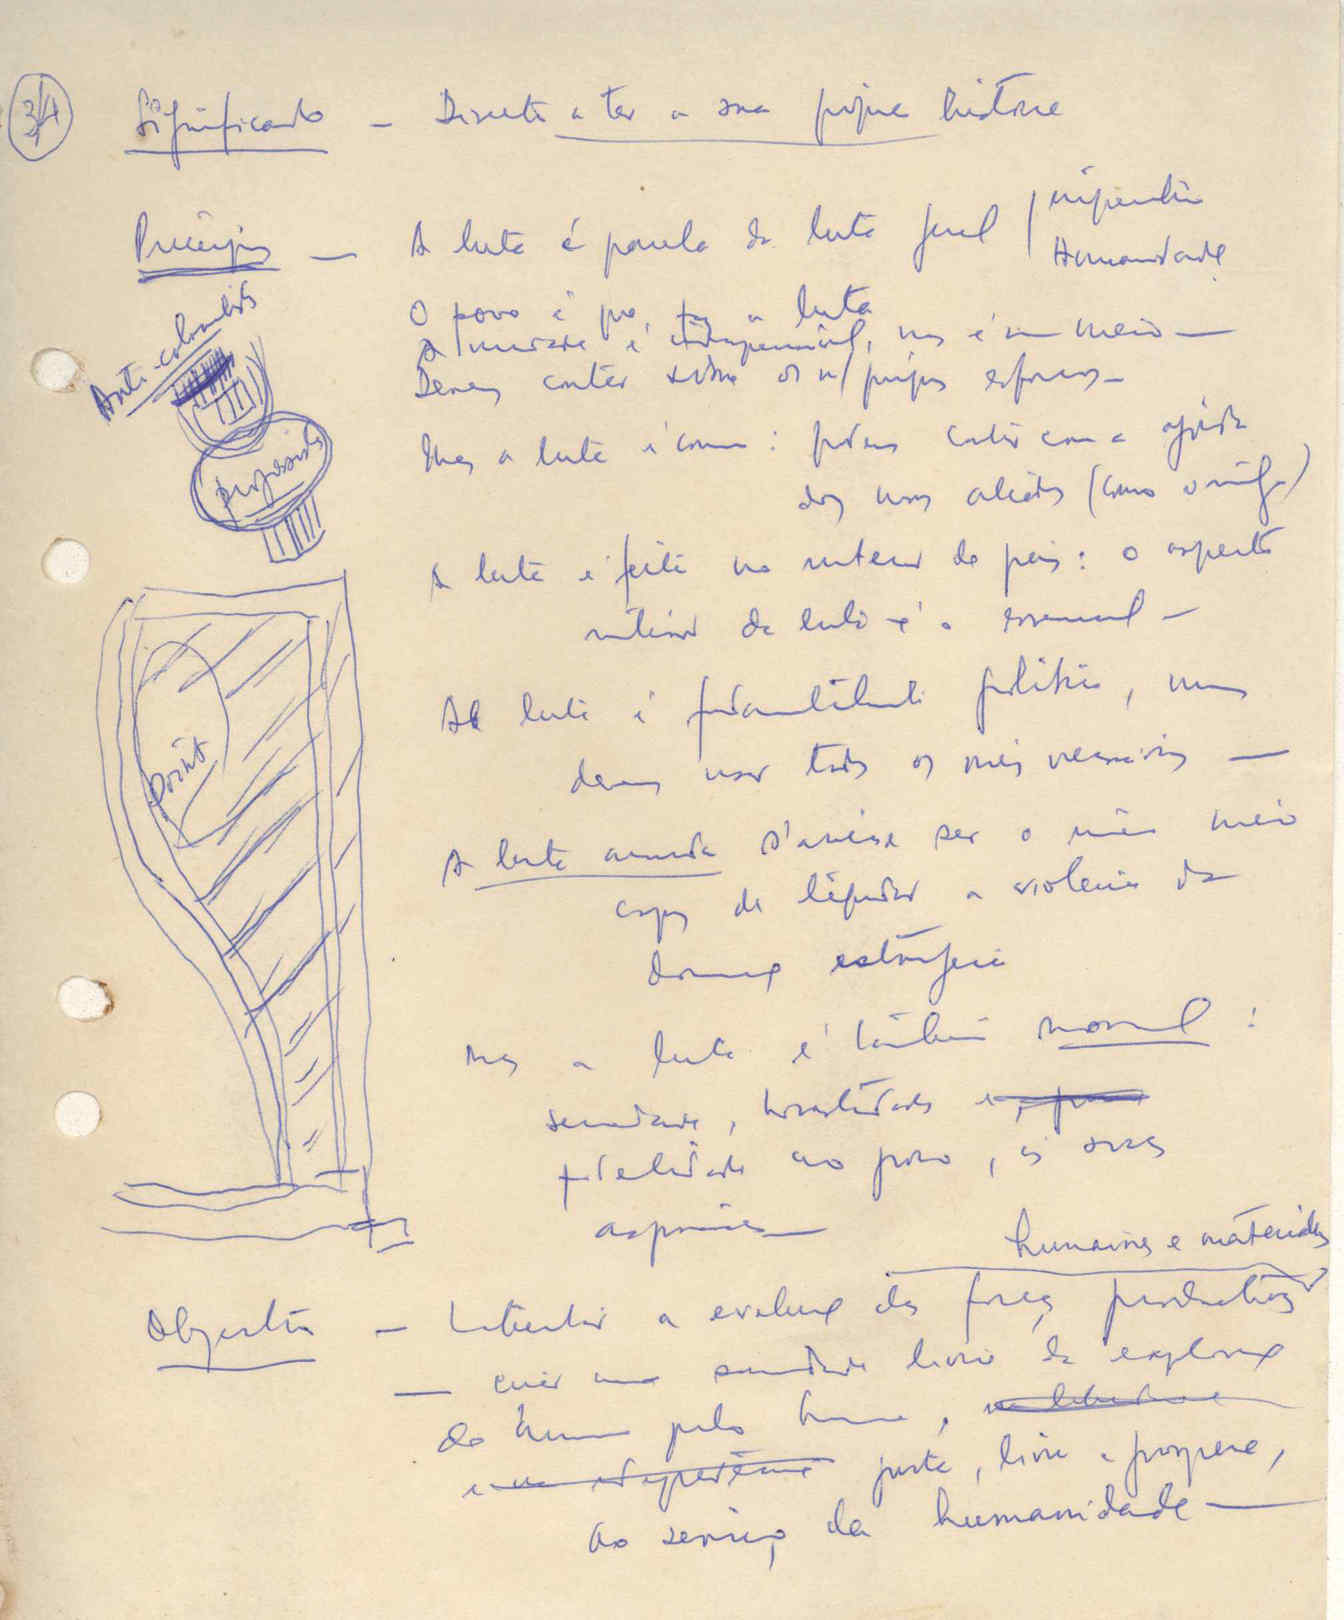 3/4
Significado – Direito a ter a sua própria história
Princípios — A luta é parcela da luta geral
Humanidade
O povo é que faz a luta
A unidade é indispensável, mas é um meio —
Devemos contar sobre os n/ próprios esforços –
Mas a luta é comum: podemos contar com a ajuda
dos nossos aliados (como
A luta é feita no interior do país: o aspecto
interior da luta é o essencial –
A luta é fundamentalmente política, mas
devemos usar todos os meios necessários —
A luta armada ser o único meio
capaz de liquidar a violência da
dominação estrangeira
Mas a luta é também moral:
honestidade e
fidelidade ao povo, às suas
aspirações —
Anti-colonialista
Point
humanas e materiais
Objectivo – Libertar a evolução das forças productivas
— criar uma sociedade livre da exploração
do homem pelo homem,
e independência justa, livre e próspera,
ao serviço da humanidade —